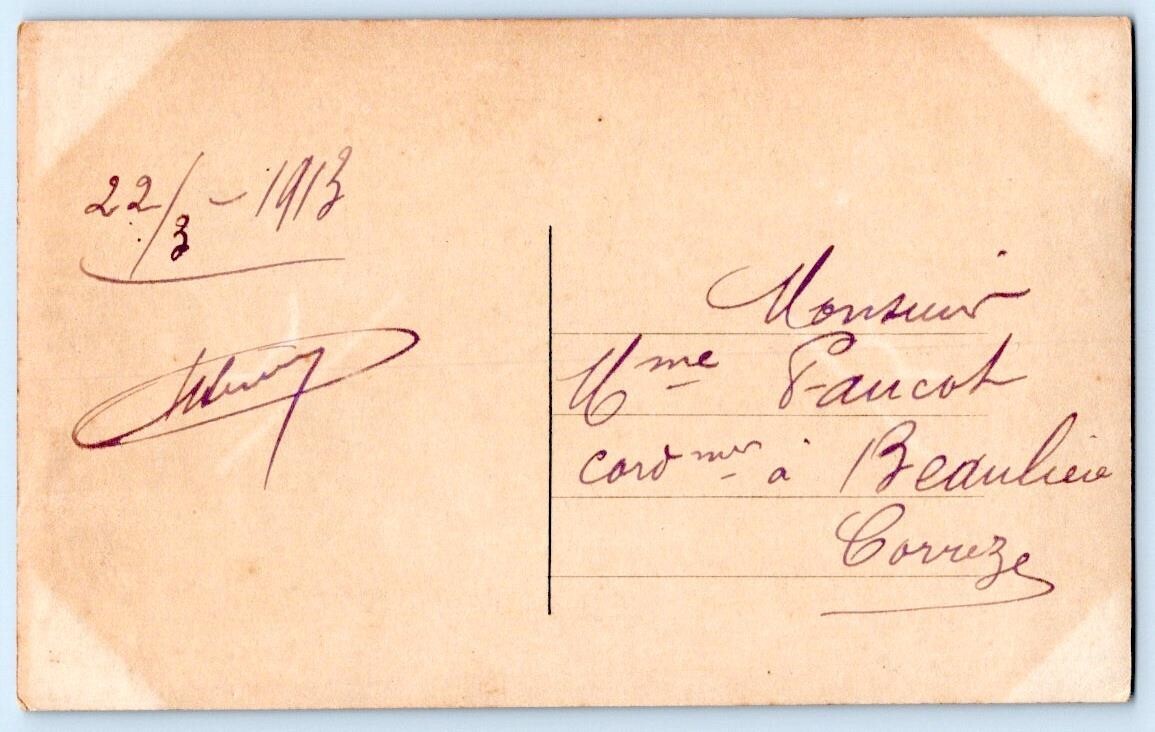 22/3 - 1913
Monsieur
Mme Faucot
cord mer à Beaulieu
Correze